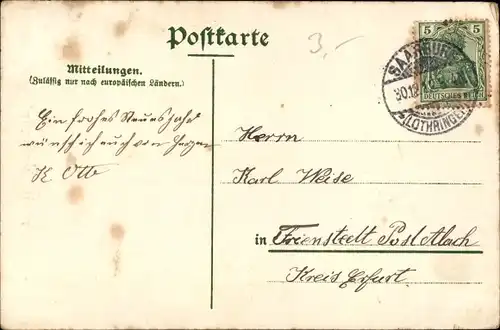 Postkarte
3,-
5 5
SAARBURG
DEUTSCHES REICH
30.12
(LOTHRINGEN)
Mitteilungen.
(Zulässig nur nach europäischen Ländern.)
Ein frohes Neues Jahr
wünsch ich auch von Herzen
K Otte
Herrn
Karl Weise
in Frienstedt Post Alach
Kreis Erfurt.